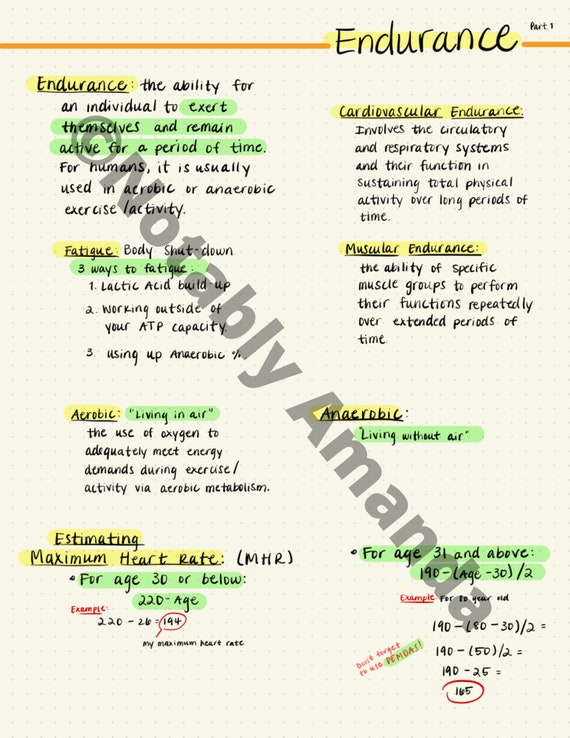 Part 1
Endurance
Endurance: the ability for
an individual to exert
themselves and remain
active for a period of time.
For humans, it is usually
used in aerobic or anaerobic
exercise/activity.
Cardiovascular Endurance:
Involves the circulatory
and respiratory systems
and their function in
sustaining total physical
activity over long periods of
time.
Fatigue: Body Shut-down
3 ways to fatigue:
1. Lactic Acid build-up
2. Working outside of
your ATP capacity.
3. Using up Anaerobic %.
Muscular Endurance:
the ability of specific
muscle groups to perform
their functions repeatedly
over extended periods of
time.
Aerobic: "Living in air"
the use of oxygen to
adequately meet energy
demands during exercise/
activity via aerobic metabolism.
Anaerobic:
"Living without air"
Estimating
Maximum Heart Rate: (MHR)
• For age 30 or below:
220-Age
Example:
220-26=194
my maximum heart rate
• For age 31 and above:
190-(Age-30)/2
Example For 80 year old
190-(80-30)/2=
190-(50)/2=
190-25=
165
Don't forget
to use PEMDAS!
©Notably Amanda